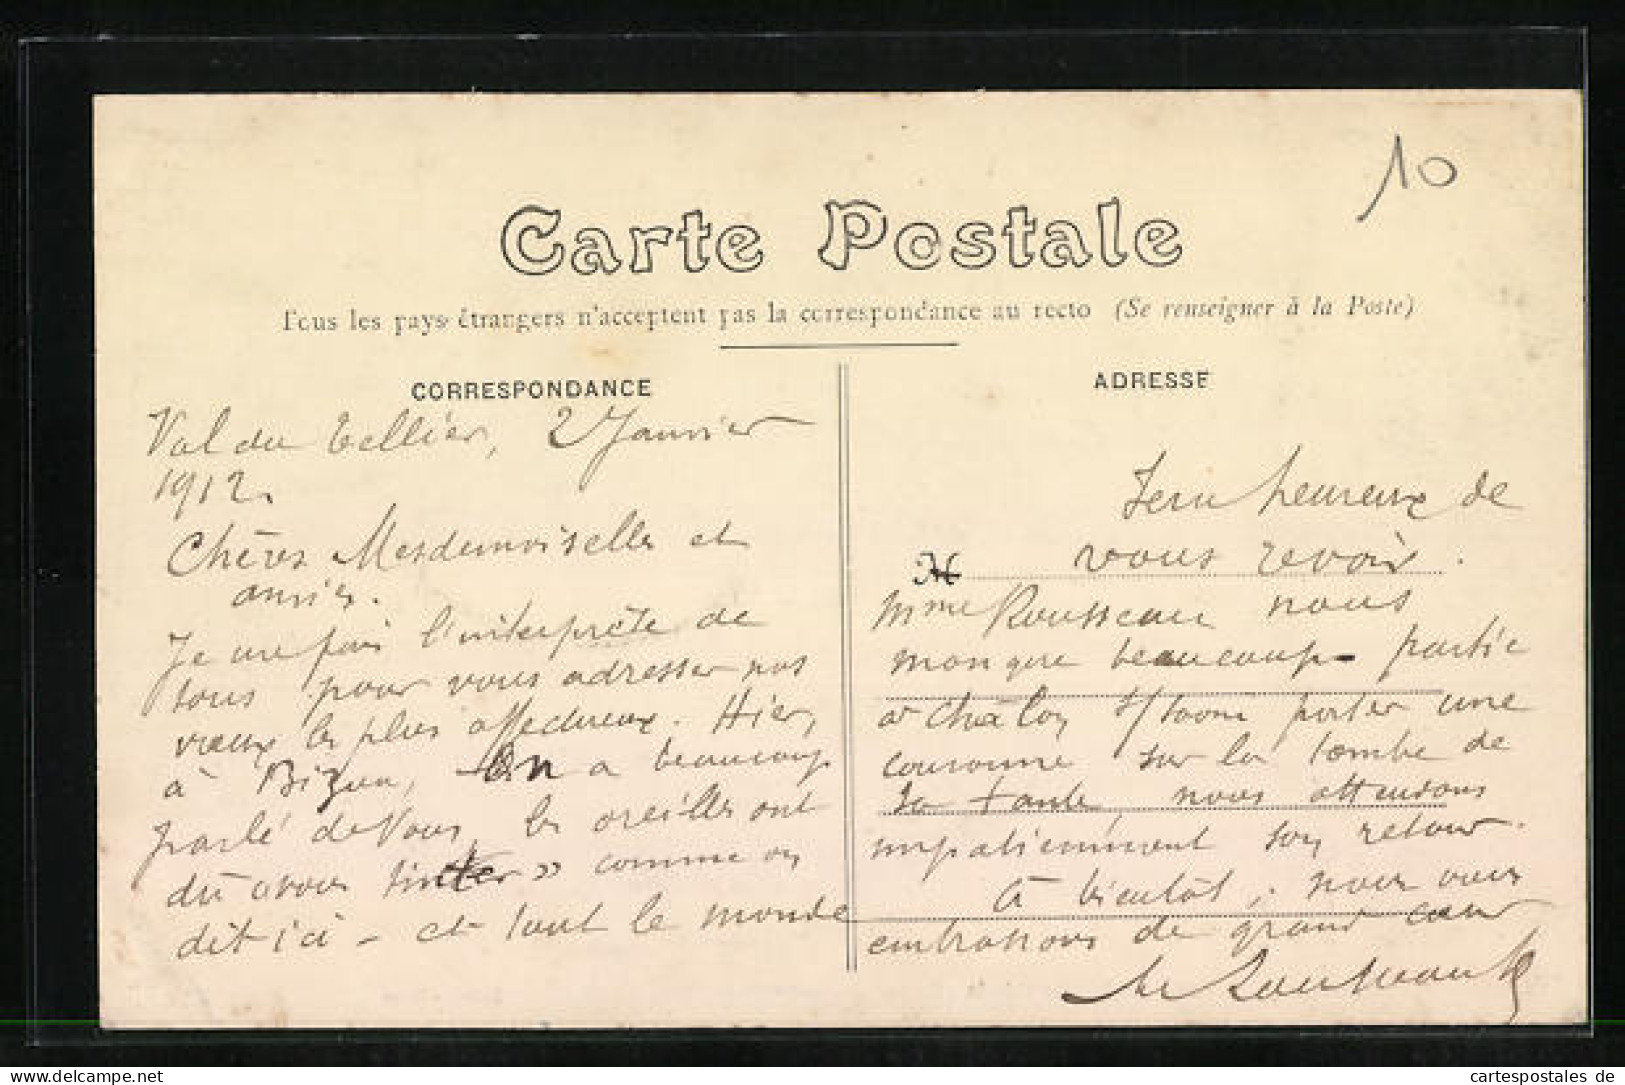 10
Carte Postale
Tous les pays étrangers n'acceptent pas la correspondance au recto (Se renseigner à la Poste)
CORRESPONDANCE
Val du Tellier, 2 Janvier
1912.
Chères Mesdemoiselles et
amies.
Je me fais l'interprète de
tous pour vous adresser nos
vœux les plus affectueux. Hier,
à On a beaucoup
parlé de Vous, les oreilles ont
dû avoir tinter » comme on
dit ici – et tout le monde
ADRESSE
sera heureux de
vous revoir.
M
Mme Rousseau nous
manque beaucoup partie
à Châlon porter une
couronne sur la tombe de
sa tante nous attendons
impatiemment son retour.
A bientôt, nous vous
embrassons de grand cœur
host-images
cartespostales de